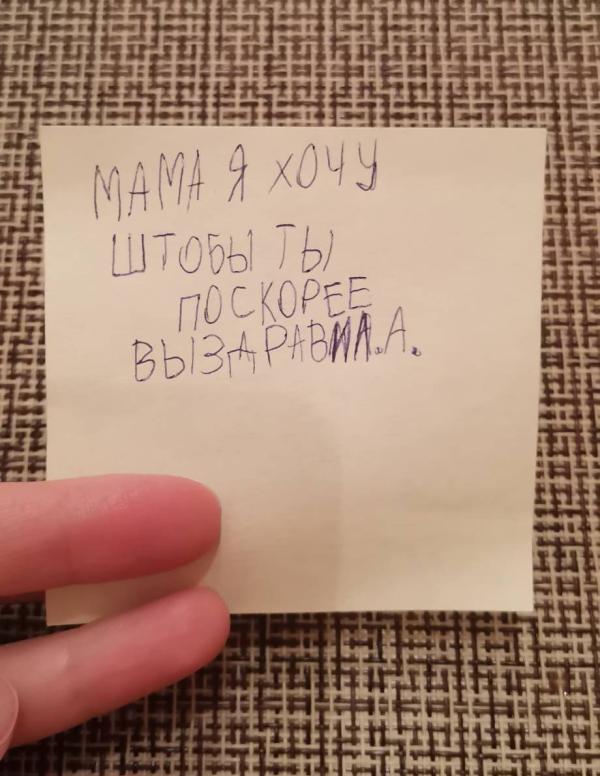 МАМА Я ХОЧУ
ШТОБЫ ТЫ
ПОСКОРЕЕ
ВЫЗДРАВИЛ.А.